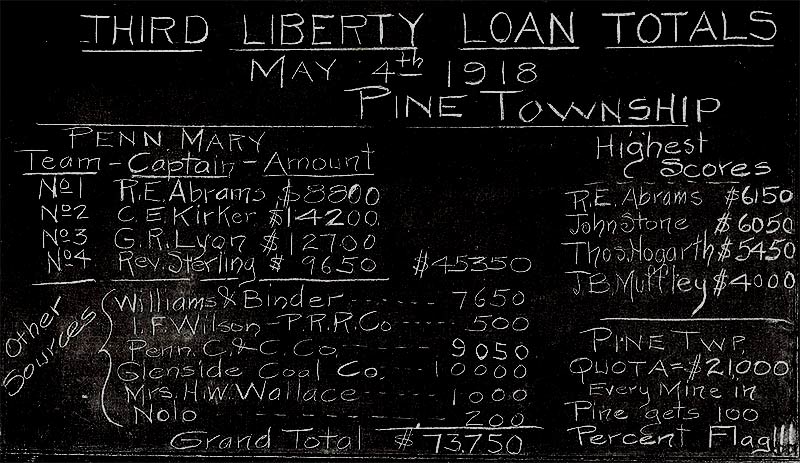 THIRD LIBERTY LOAN TOTALS
MAY 4th 1918
PINE TOWNSHIP
PENN MARY
Team - Captain - Amount
No1 R.E. Abrams $8800
No2 C.E. Kirker $14200
No3 G.R. Lyon $12700
No4 Rev. Sterling $9650 $45350
Other Sources
Williams & Binder 7650
I.F. Wilson - P.R.R. Co 500
Penn. C. & C. Co. 9050
Glenside Coal Co. 10000
Mrs. H.W. Wallace 1000
Nolo 200
Grand Total $73,750
Highest
Scores
R.E. Abrams $6150
John Stone $6050
Thos. Hogarth $5450
J.B. Muffley $4000
PINE TWP.
QUOTA = $21,000
Every Mine in
Pine gets 100
Percent Flag!!!